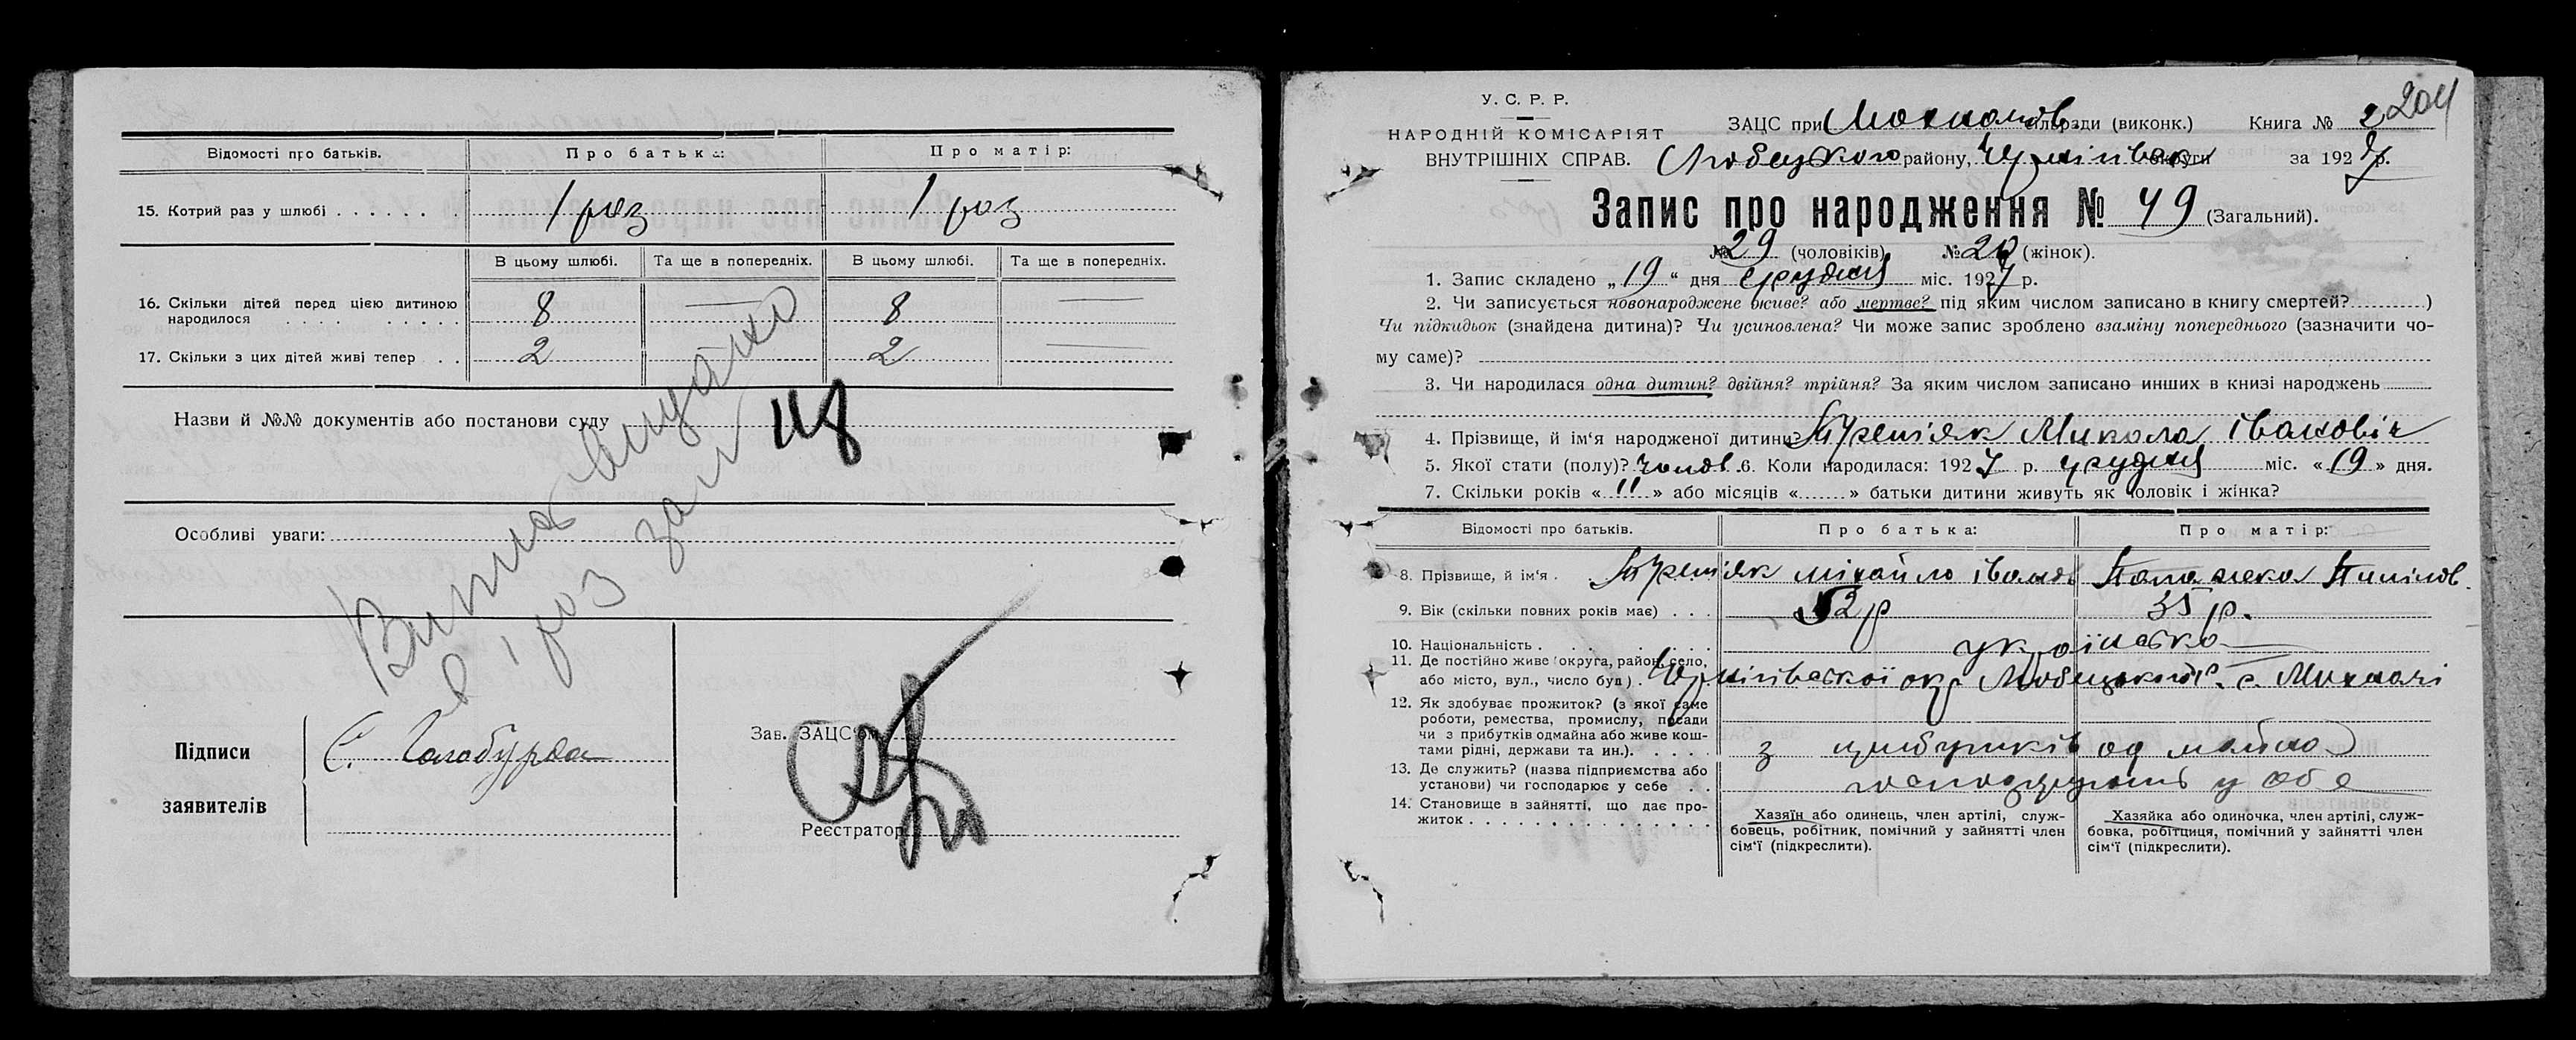 Відомості про батьків.
Про батька:
Про матір:
15. Котрий раз у шлюбі . . . . . . .
1 раз
1 раз
В цьому шлюбі.
Та ще в попередніх.
В цьому шлюбі.
Та ще в попередніх.
16. Скільки дітей перед цією дитиною
народилося . . . . . . . . .
8
8
17. Скільки з цих дітей живі тепер . .
2
2
Назви й №№ документів або постанови суду
48
Особливі уваги:
раз за
Підписи
заявителів
Зав. ЗАЦС'ом
Реєстратор
У. С. Р. Р.
НАРОДНІЙ КОМІСАРІЯТ
ВНУТРІШНІХ СПРАВ.
204
ЗАЦС при сільради (виконк.) Книга № 2
Любецького району, Чернігівськ округи за 1927 р.
Запис про народження № 49 (Загальний).
№ 29 (чоловіків) № 20 (жінок).
1. Запис складено „ 19 “ дня грудня міс. 1927 р.
2. Чи записується новонароджене живе? або мертве? під яким числом записано в книгу смертей? )
Чи підкидьок (знайдена дитина)? Чи усиновлена? Чи може запис зроблено взаміну попереднього (зазначити чо-
му саме)?
3. Чи народилася одна дитин? двійня? трійня? За яким числом записано инших в книзі народжень
4. Прізвище, й ім'я народженої дитини? Микола Івановіч
5. Якої стати (полу)? чолов. 6. Коли народилася: 1927 р. грудня міс. « 19 » дня.
7. Скільки років « 11 » або місяців « » батьки дитини живуть як чоловік і жінка?
Відомості про батьків.
Про батька:
Про матір:
8. Прізвище, й ім'я . міхайло іванов
9. Вік (скільки повних років має) . . . 52р 35 р.
10. Національність . . . . . . українська
11. Де постійно живе (округа, район, село,
або місто, вул., число буд.) . Чернігівської окр. Любецького р. с.
12. Як здобуває прожиток? (з якої саме
роботи, ремества, промислу, посади
чи з прибутків одмайна або живе кош-
тами рідні, держави та ин.). . . . .
з прибутків од майна
13. Де служить? (назва підприємства або
установи) чи господарює у себе . .
господарують у себе
14. Становище в зайнятті, що дає про-
житок . . . . . . . . . . . . . . . .
Хазяїн або одинець, член артілі, служ-
бовець, робітник, помічний у зайнятті член
сім'ї (підкреслити).
Хазяйка або одиночка, член артілі, служ-
бовка, робітциця, помічний у зайнятті член
сім'ї (підкреслити).